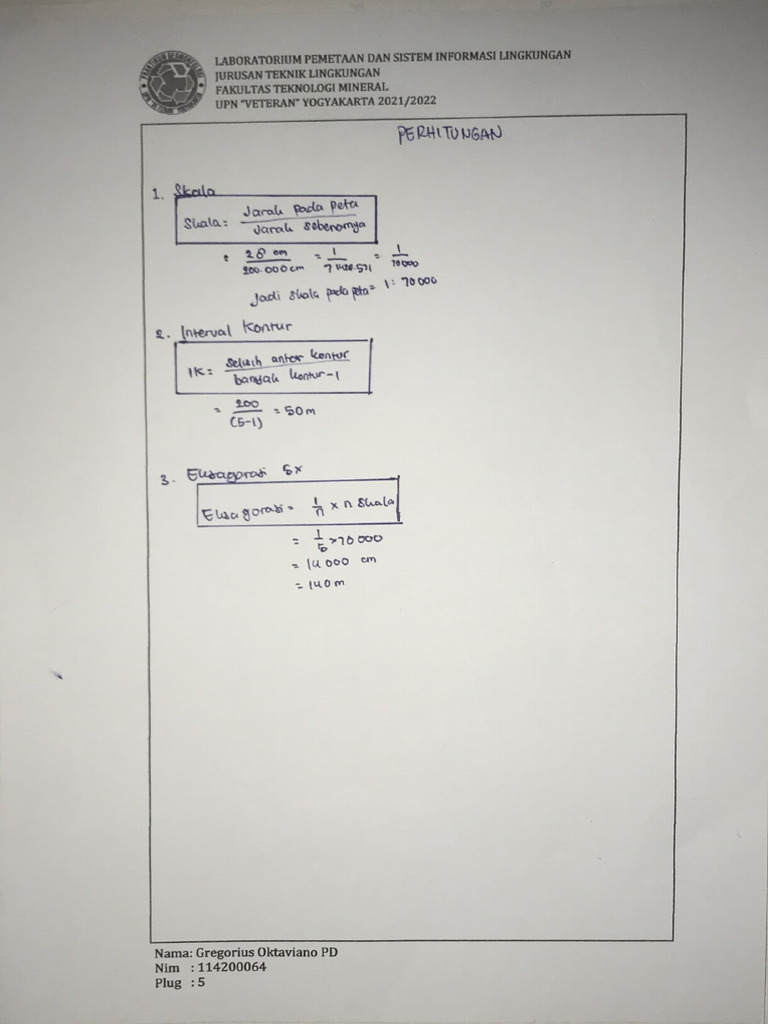 LABORATORIUM PEMETAAN DAN SISTEM INFORMASI LINGKUNGAN
JURUSAN TEKNIK LINGKUNGAN
FAKULTAS TEKNOLOGI MINERAL
UPN "VETERAN" YOGYAKARTA 2021/2022
PERHITUNGAN
1. Skala
Skala = Jarak pada peta / Jarak sebenarnya
= 28 cm / 200.000 cm = 1 / 71428.571 = 1 / 70000
Jadi skala pada peta = 1 : 70000
2. Interval Kontur
IK = selisih antar kontur / banyak kontur-1
= 200 / (5-1) = 50 m
3. Eksagorasi 5x
Eksagorasi = 1/n x n skala
= 1/5 x 70 000
= 14 000 cm
= 140 m
Nama: Gregorius Oktaviano PD
Nim : 114200064
Plug : 5